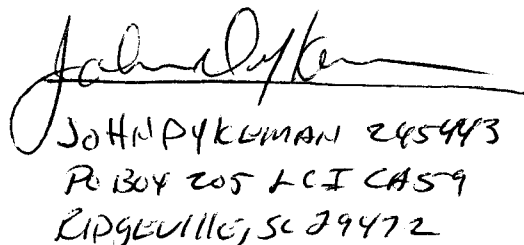 John Dykeman
JOHN DYKEMAN 245443
PO BOX 205 LCI CA59
RIDGEVILLE, SC 29472